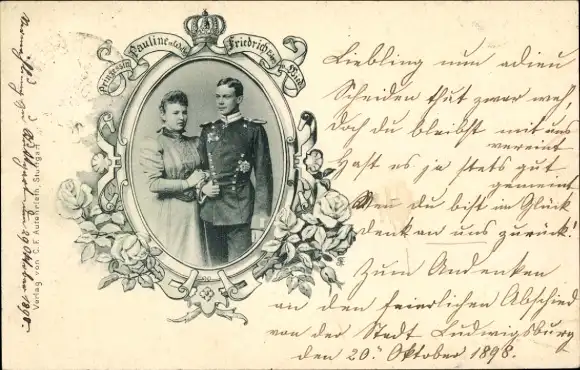 Prinzessin Pauline
Friedrich
Liebling nun adieu
Scheiden thut zwar weh,
Doch du bleibst mit uns
vereint
Hast es ja stets gut
gemeint
Wenn du bist im Glück
denk an uns zurück!
Zum Andenken
an den feierlichen Abschied
von der Stadt Ludwigsburg
den 20. Oktober 1898.
Verlag von C. F. Autenrieth, Stuttgart
Oktober 1898.